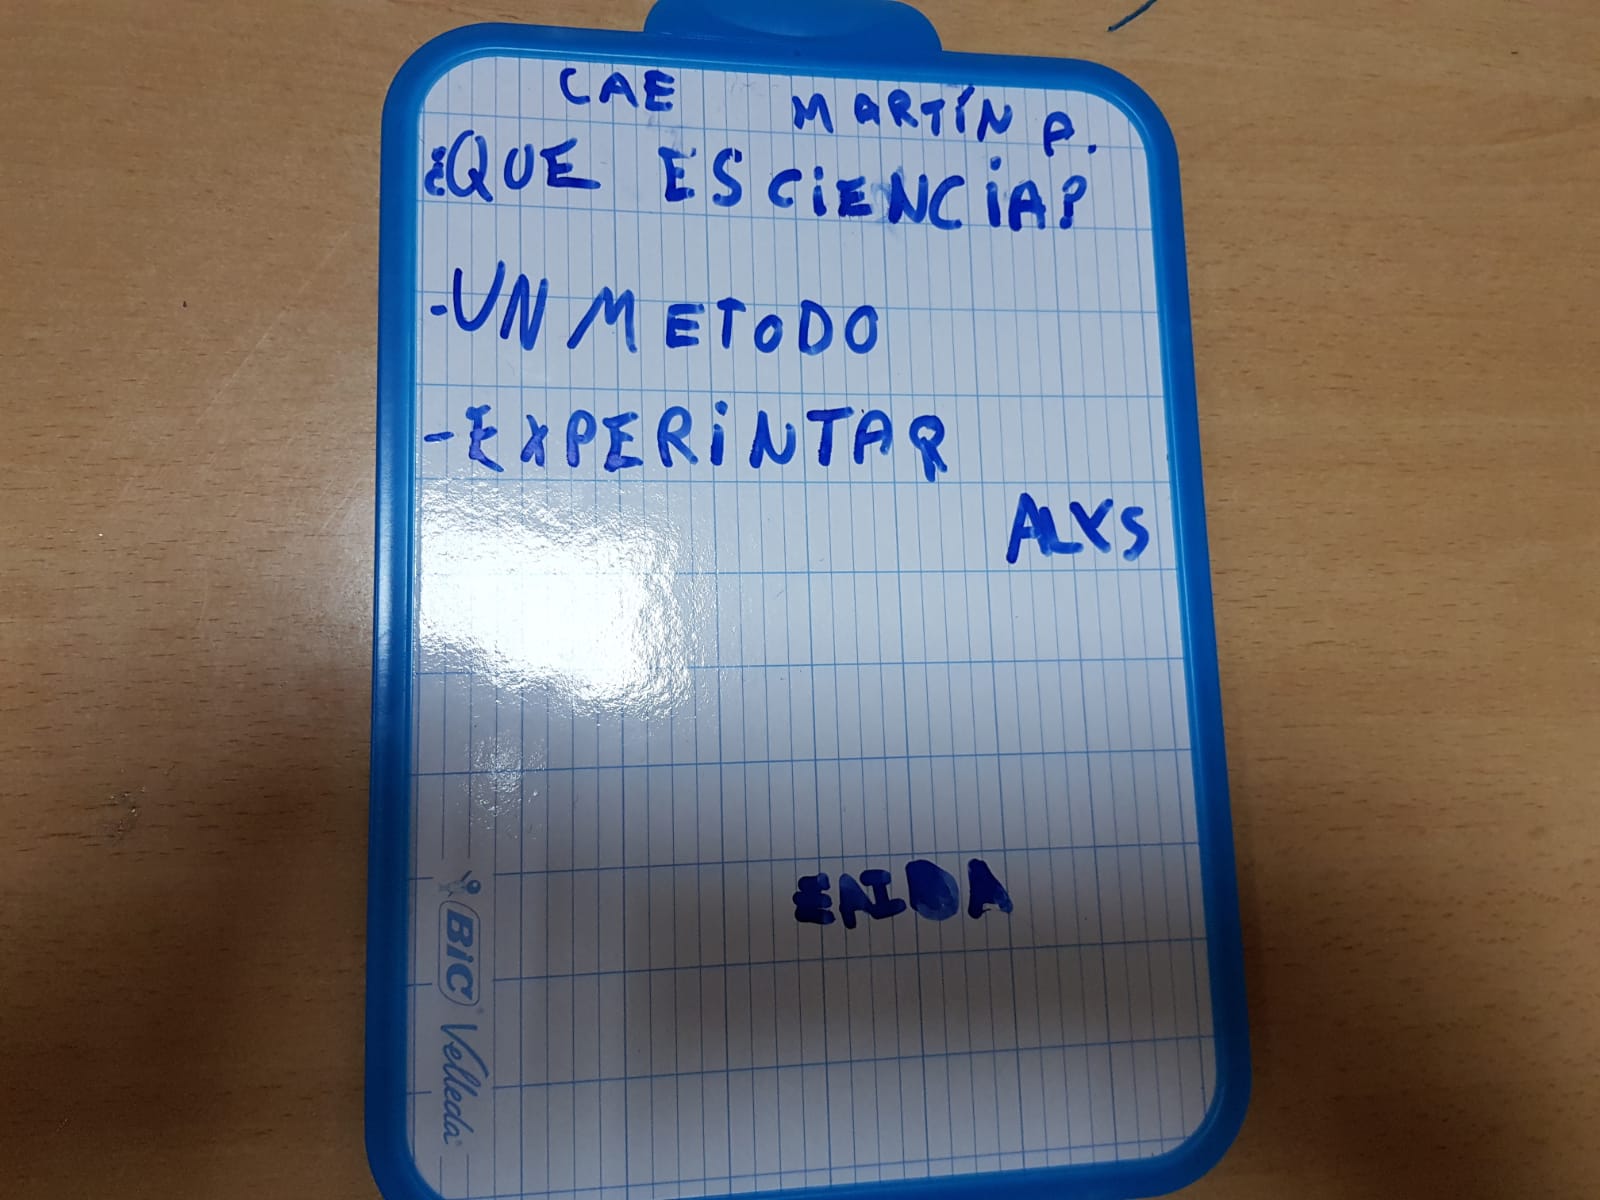 CAE MARTÍN P.
¿QUE ES CiENCiA?
-UN METODO
-EXPERiNTAR
ALYS
BiC Velleda